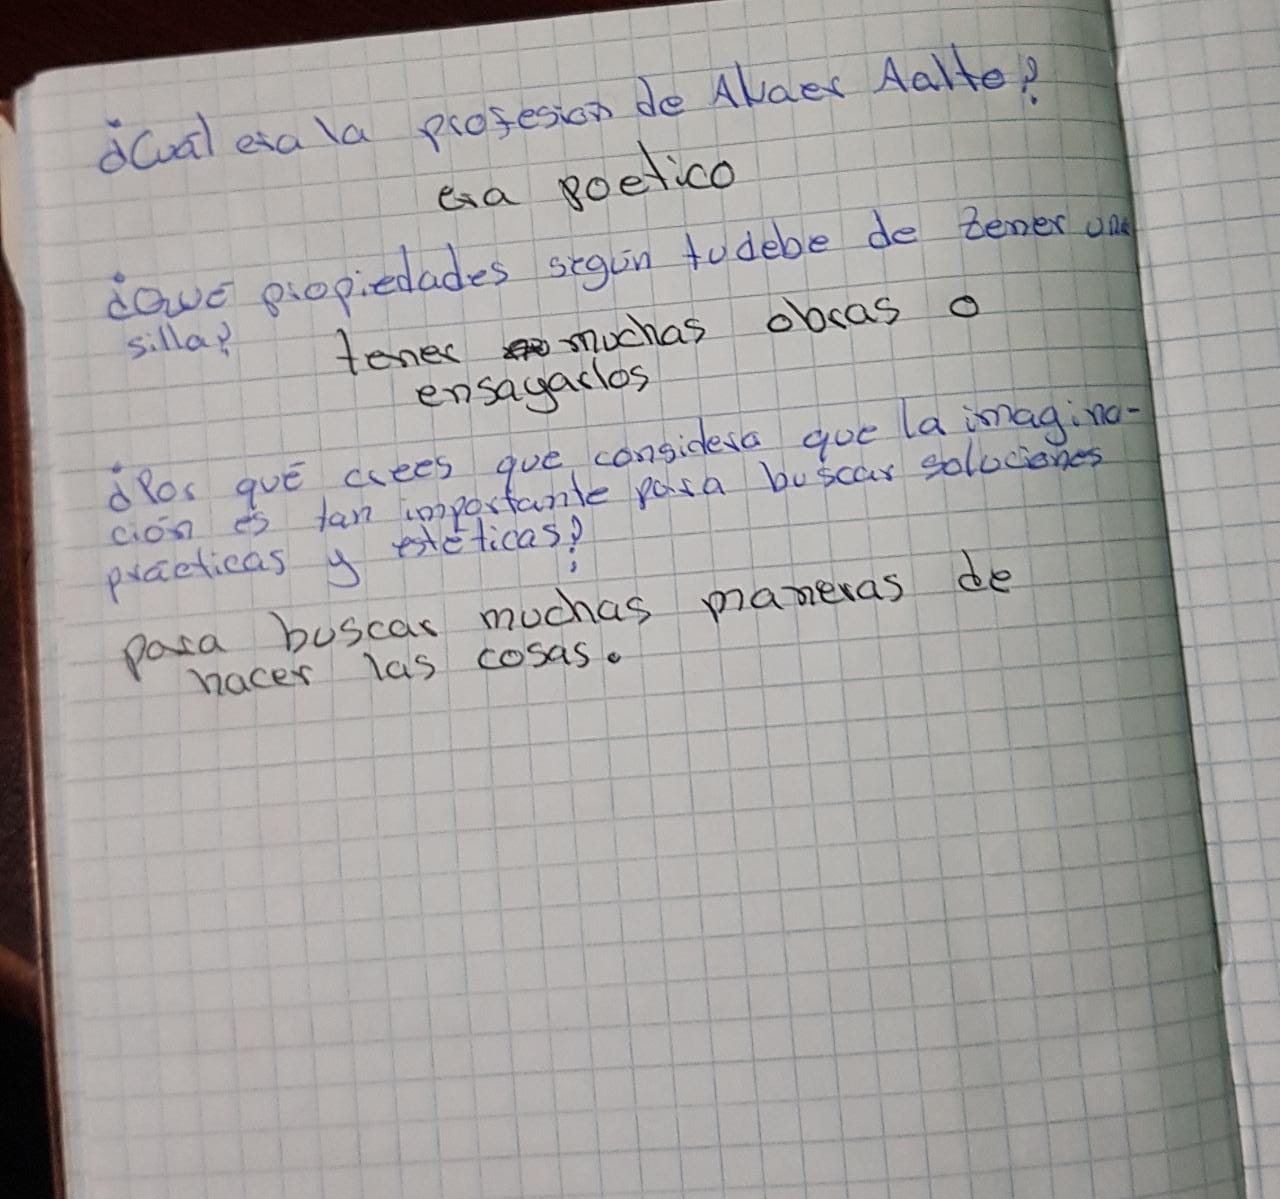 ¿Cuál era la profesion de Alvaer Aalto?
era poetico
¿Qué propiedades según tu debe de tener una
silla?
tener muchas obras o
ensayarlos
¿Por qué crees que considera que la imagina-
ción es tan importante para buscar soluciones
prácticas y estéticas?
para buscar muchas maneras de
hacer las cosas.